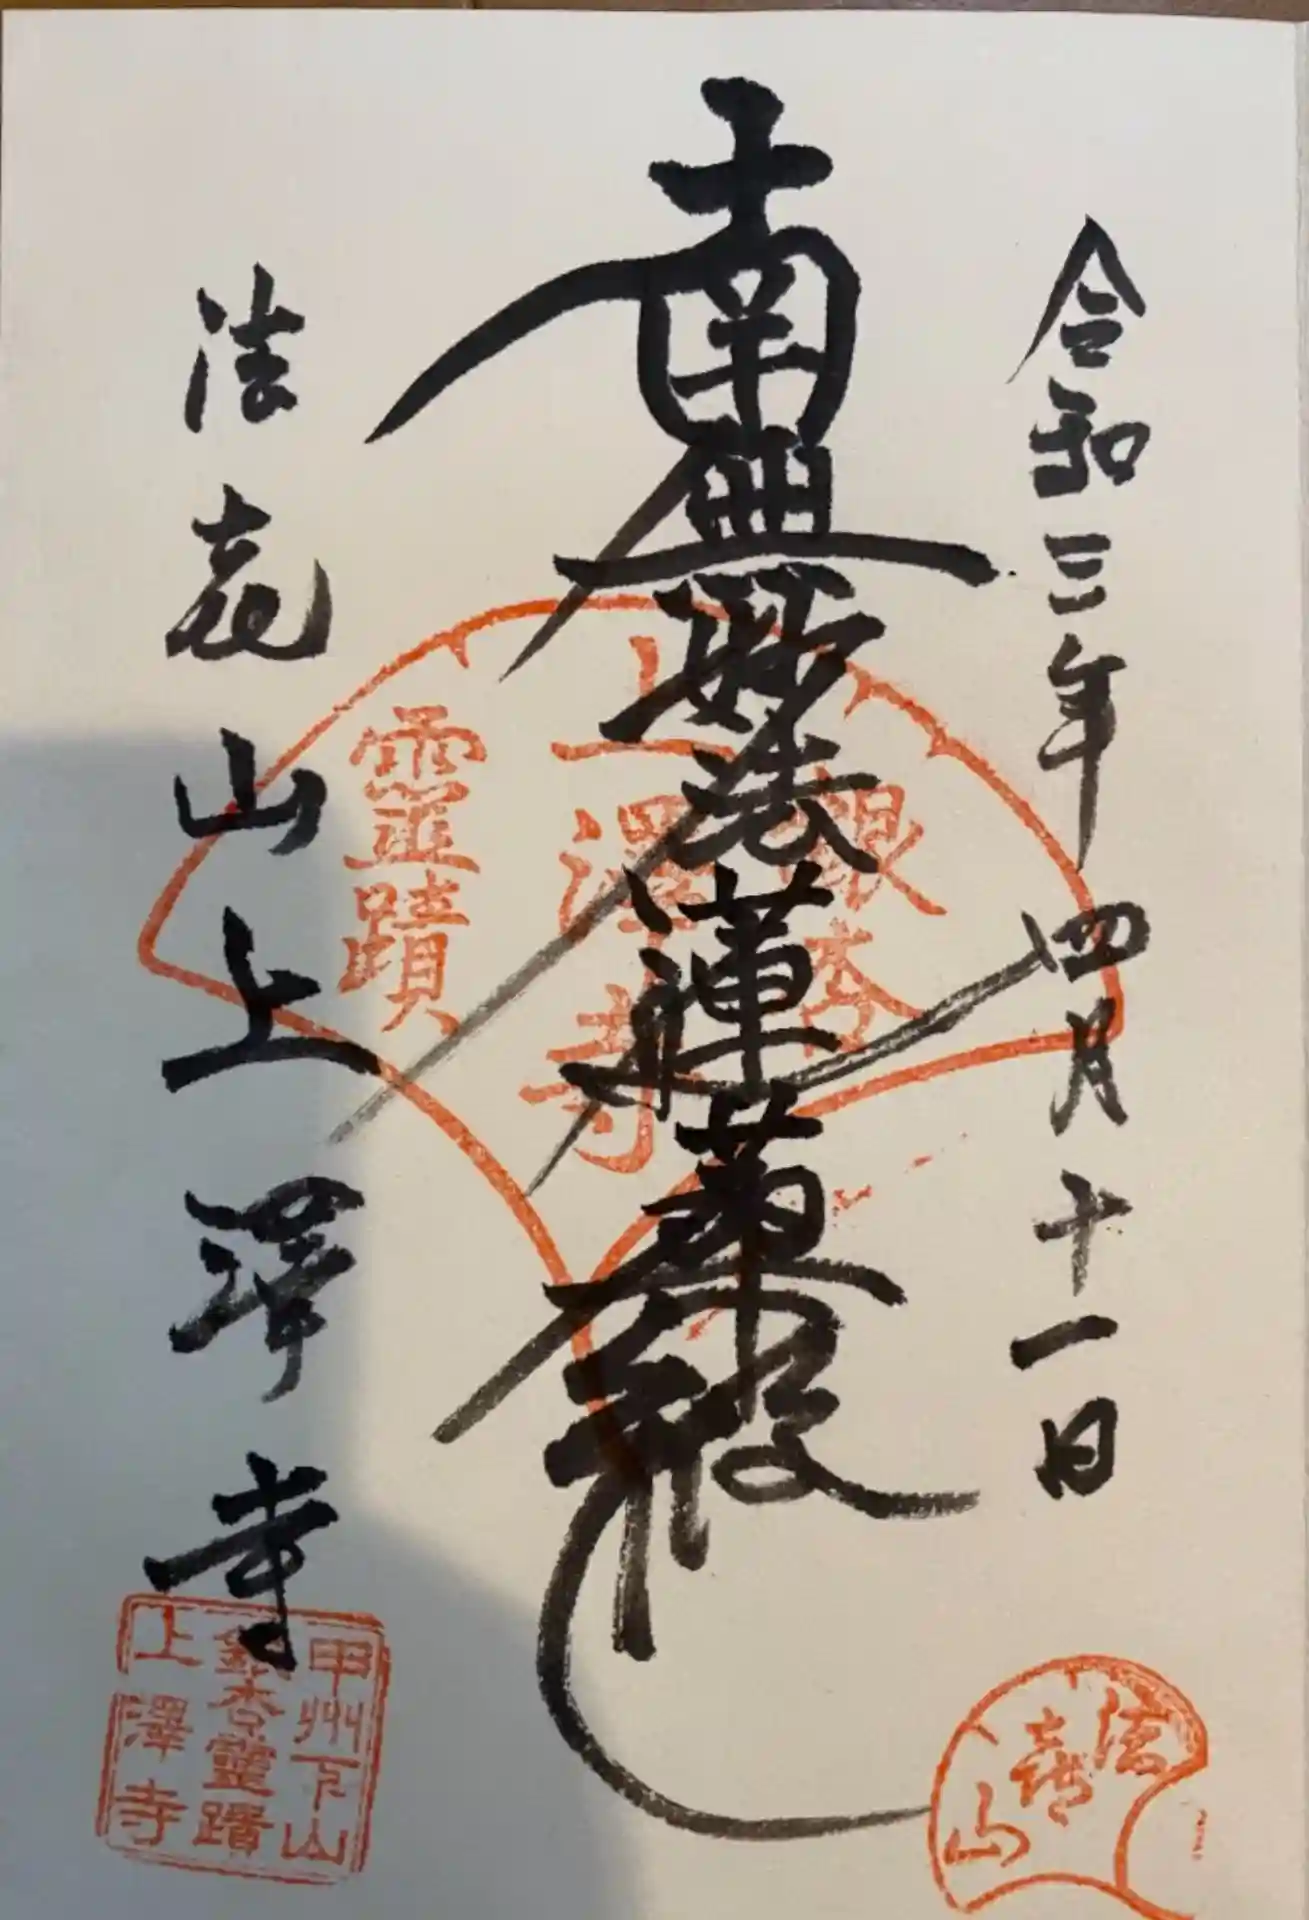 令和三年四月十一日
南無妙法蓮華経
法喜山上澤寺
銀杏
上澤寺
靈蹟
法喜山
甲州下山
銀杏靈蹟
上澤寺